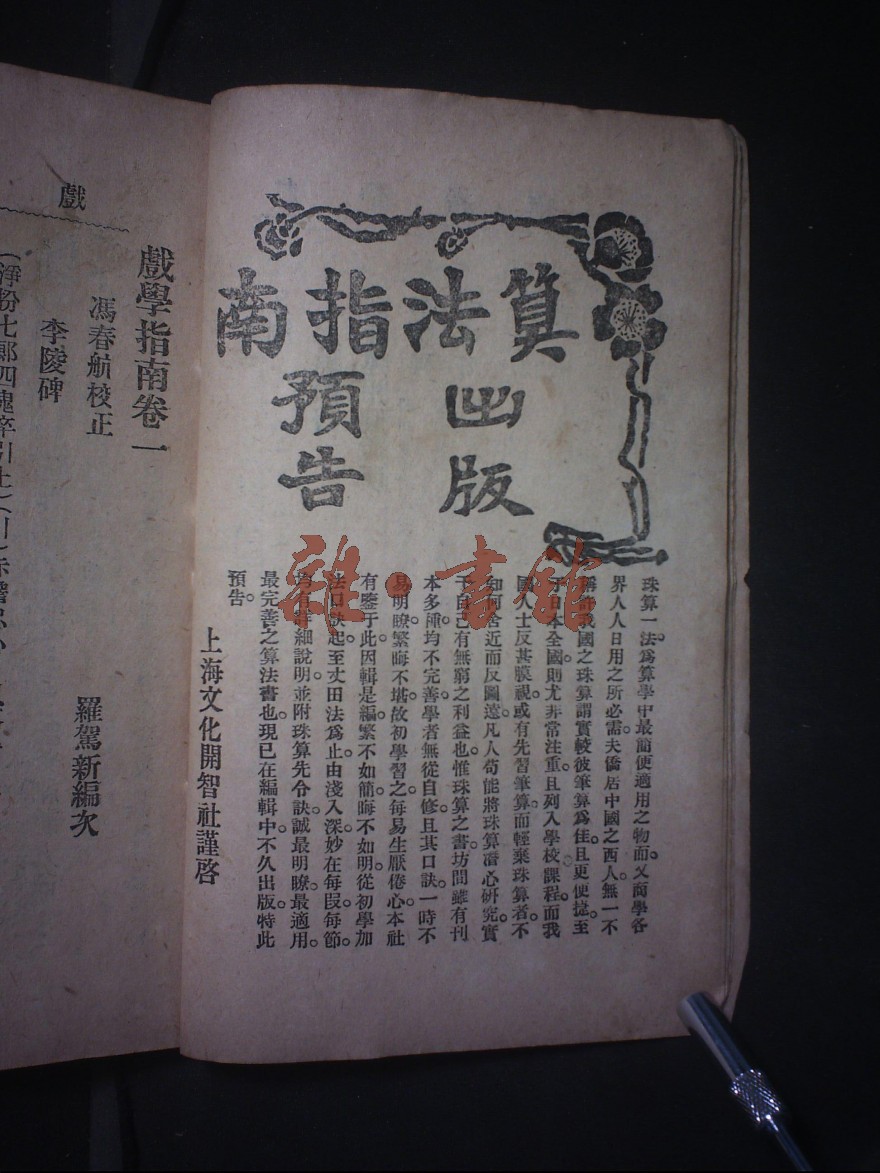 算法指南
出版
預告
珠算一法。爲算學中最簡便適用之物。而又商學各
界人人日用之所必需。夫僑居中國之西人。無一不
稱許我國之珠算。謂實較彼筆算爲佳。且更便捷。至
于日本全國。則尤非常注重。且列入學校課程。而我
國人士反甚膜視。或有先習筆算。而輕棄珠算者。不
知何舍近而反圖遠。凡人苟能將珠算潛心研究。實
于自己有無窮之利益也。惟珠算之書。坊間雖有刊
本多種。均不完善。學者無從自修。且其口訣。一時不
易明瞭。繁晦不堪。故初學習之。每易生厭倦心。本社
有鑒于此。因輯是編。繁不如簡。晦不如明。從初學加
法口訣起。至丈田法爲止。由淺入深。妙在每段每節。
均有詳細說明。並附珠算先令訣。誠最明瞭。最適用。
最完善之算法書也。現已在編輯中。不久出版。特此
預告。
上海文化開智社謹啓
雜·書館
戲
戲學指南卷一
馮春航校正
羅駕新編次
李陵碑